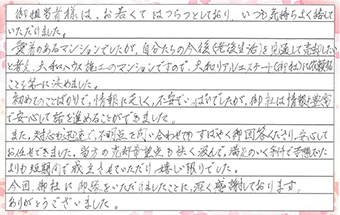 御担当者様は、お若くてはつらつとしており、いつも気持ちよく接して
いただけました。
愛着のあるマンションでしたが、自分たちの今後(老後生活)を見通して売却したい
と考え、大和ハウス施工のマンションですので、大和リアルエステート(御社)に依頼する
ことを第一に決めました。
初めてのことばかりで、情報に乏しく、不安でいっぱいでしたが、御社は情報も豊富
で安心して話を進めることができました。
また、対応も迅速で、不明点を問い合わせてもすばやく御回答くださり、安心して
お任せできました。当方の売却希望点も快く汲んで、満足のいく条件で予想
よりも短期間で成立させていただけ、嬉しい限りでした。
今回、御社に御縁をいただけましたことに、深く感謝しております。
ありがとうございました。